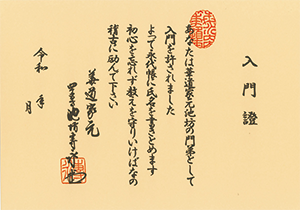 入門證
あなたは華道家元池坊の門弟として
入門を許されました
よって永代帳に氏名を書きとめます
初心を忘れず教えを守りいけばなの
稽古に励んで下さい
令和 年 月
華道家元
池坊専永